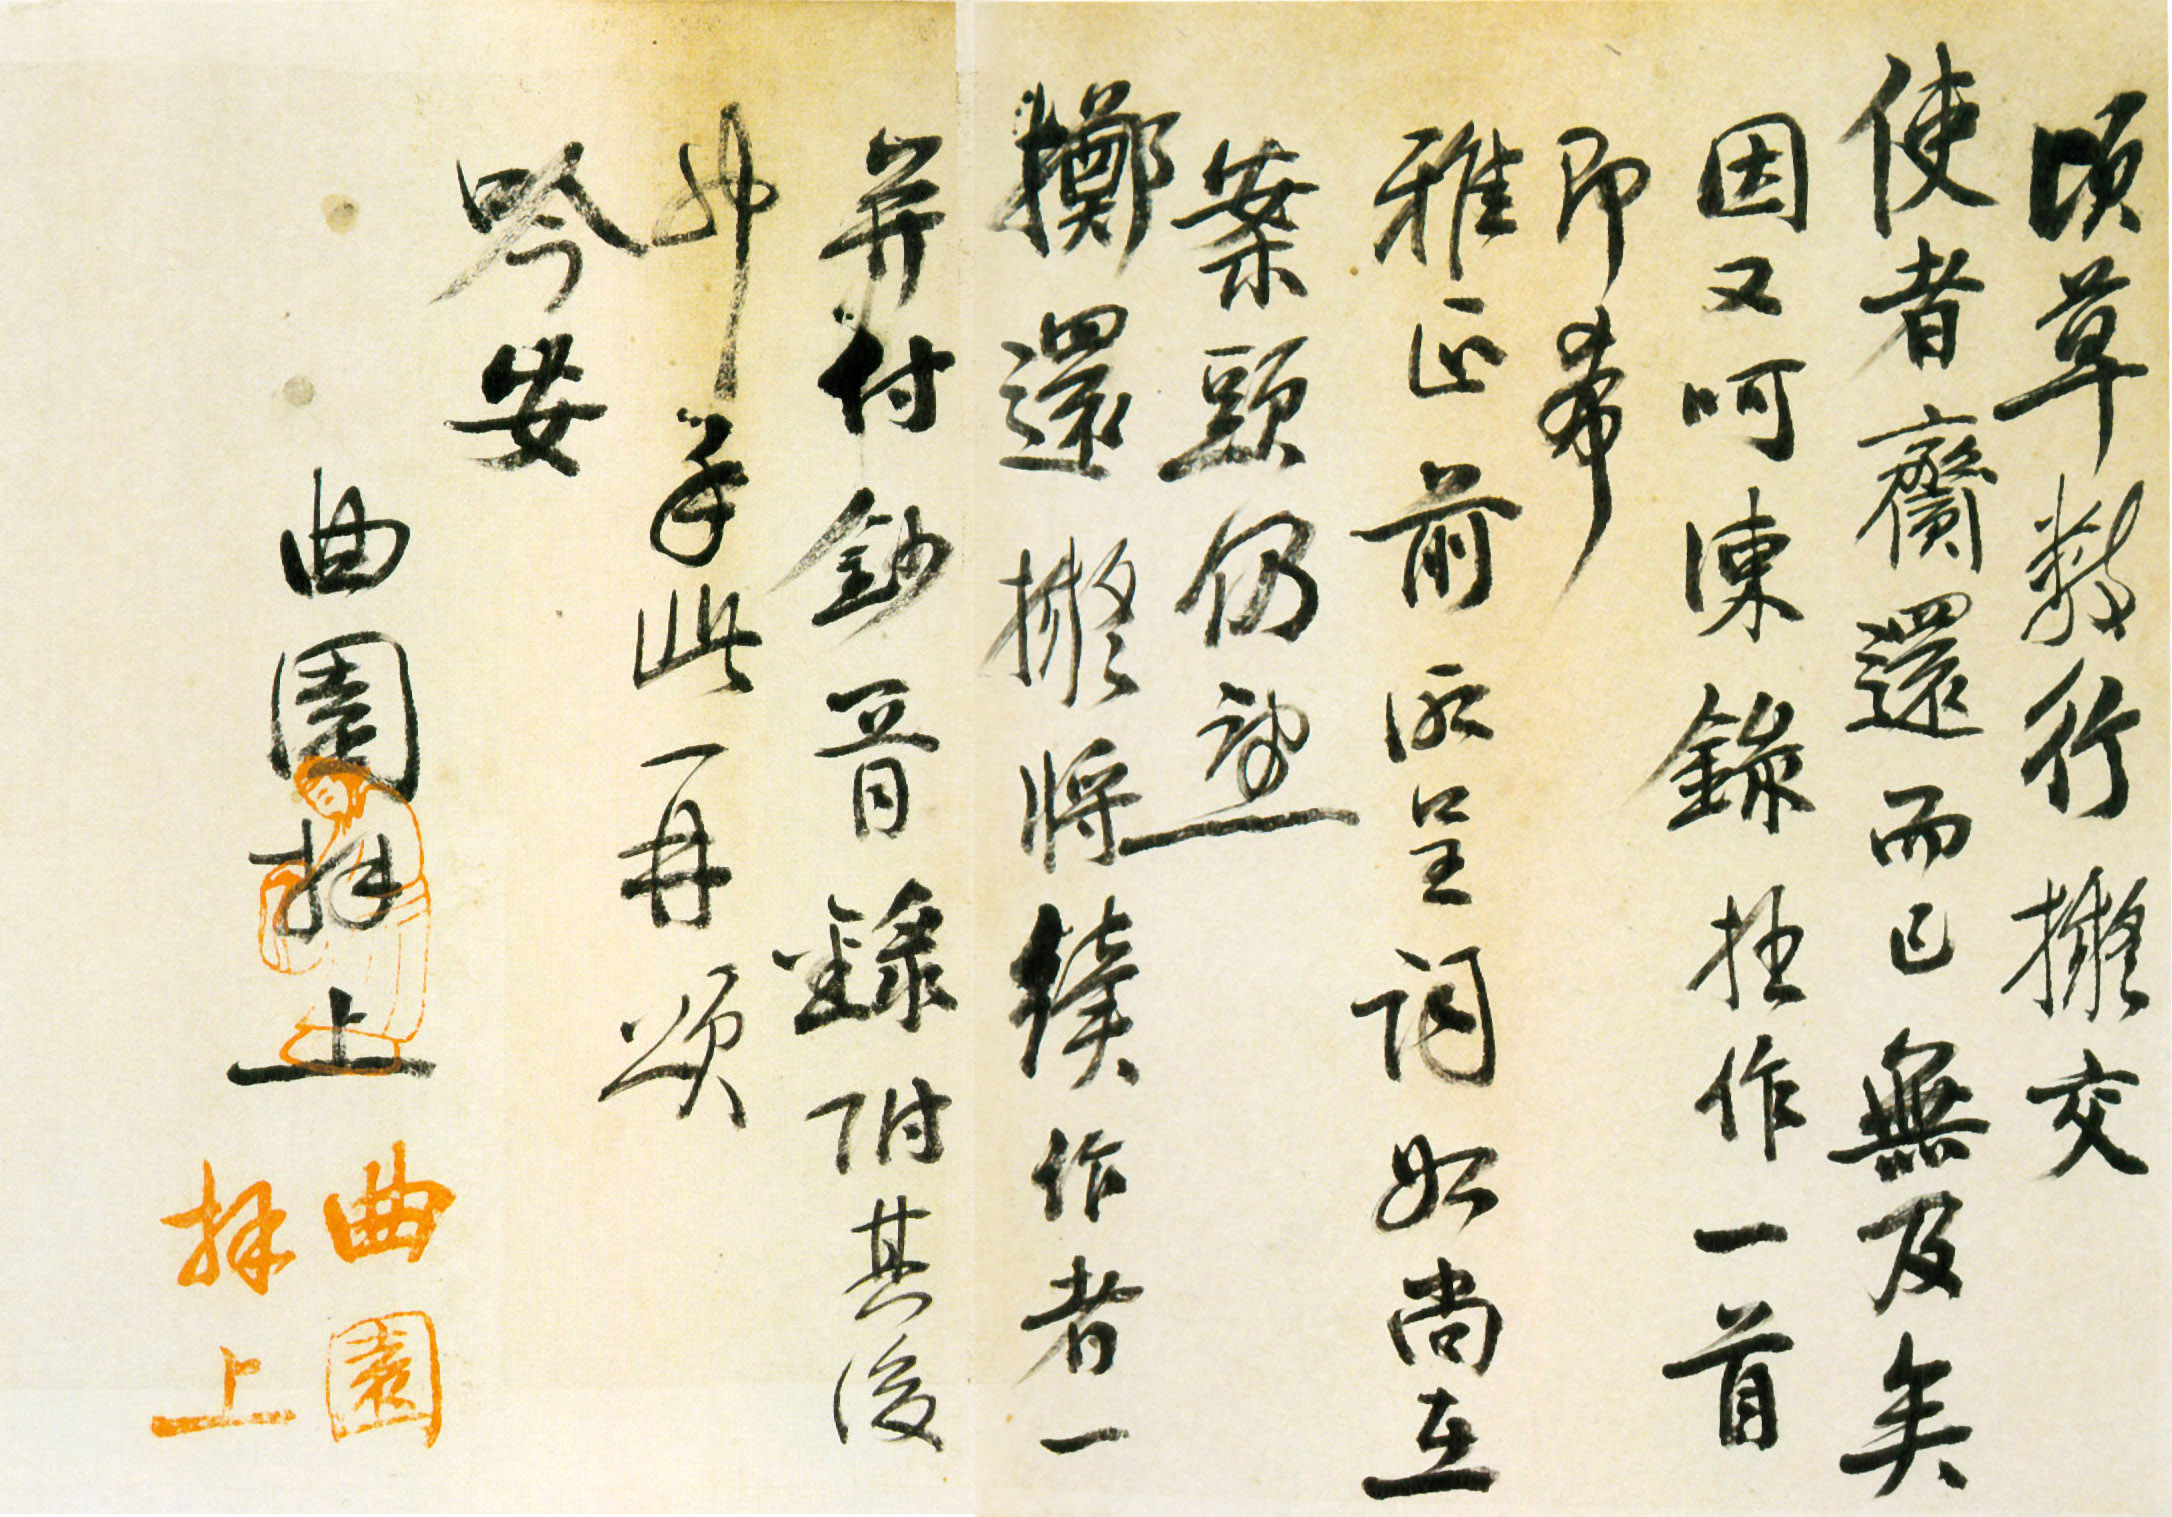 頃草數行擬交
使者齎還而已無及矣
因又呵凍錄拙作一首
即希
雅正前呈詞如尚在
案頭仍望
擲還擬將續作者一
并付鈔胥錄附其後
耳手此再頌
吟安
曲園拜上
曲園
拜上